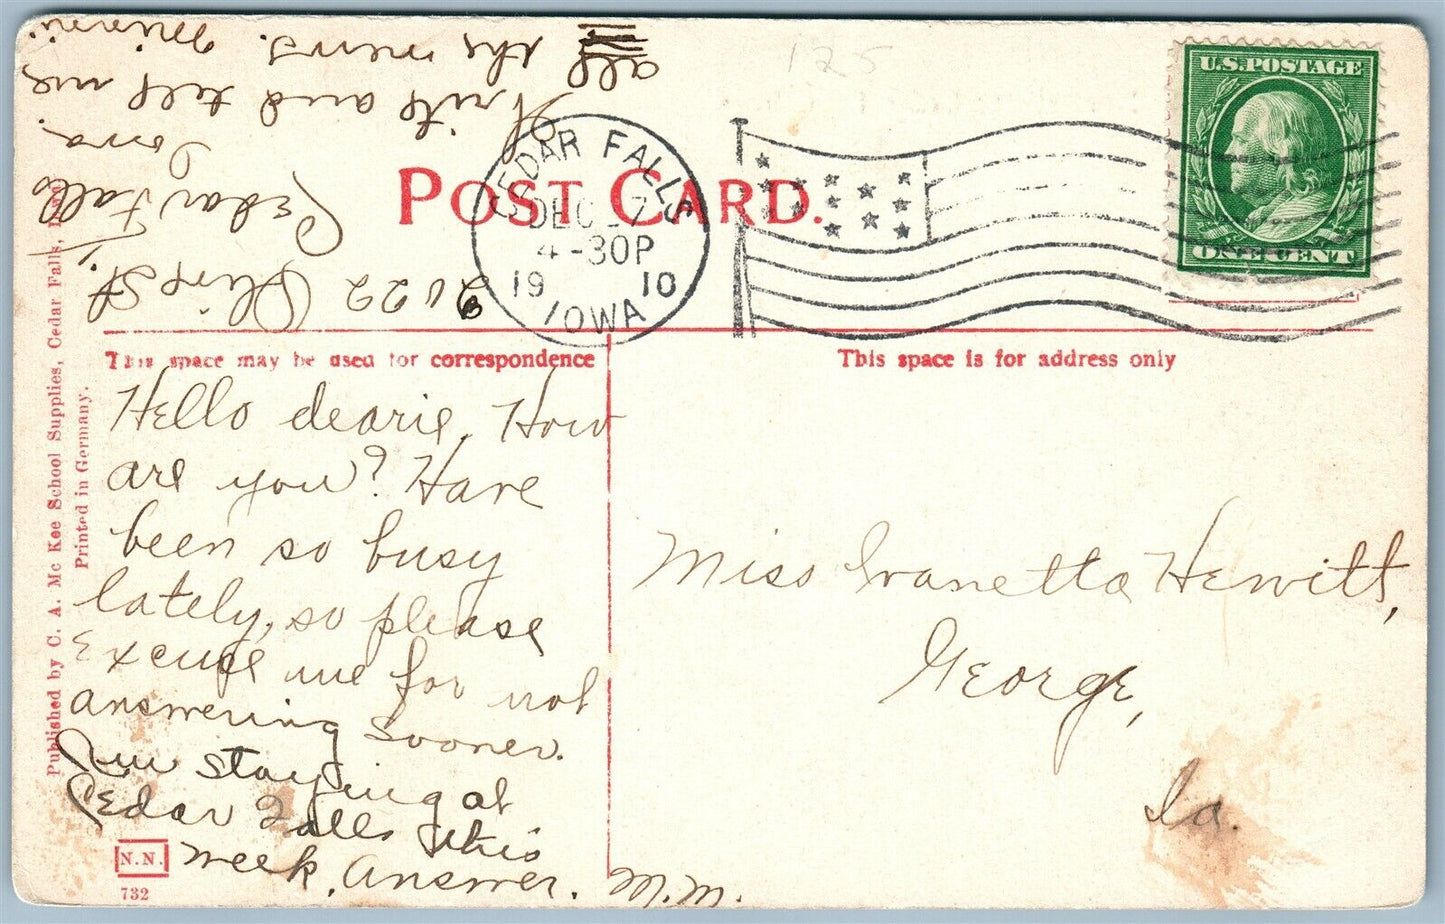 125
U.S.POSTAGE
ONE CENT
POST CARD.
CEDAR FALLS
DEC 27
4-30P
19 10
IOWA
This space may be used for correspondence
This space is for address only
Hello dearie, How
are you? Have
been so busy
lately, so please
Excuse me for not
answering sooner.
Am staying at
Cedar Falls this
week. Answer. M.M.
2022 Olive St.,
Cedar Falls
Iowa.
Write and tell me
all the news.
Miss Ivanetta Hewitt,
George,
Ia.
Published by C. A. Mc Kee School Supplies, Cedar Falls,
Printed in Germany.
N.N.
732